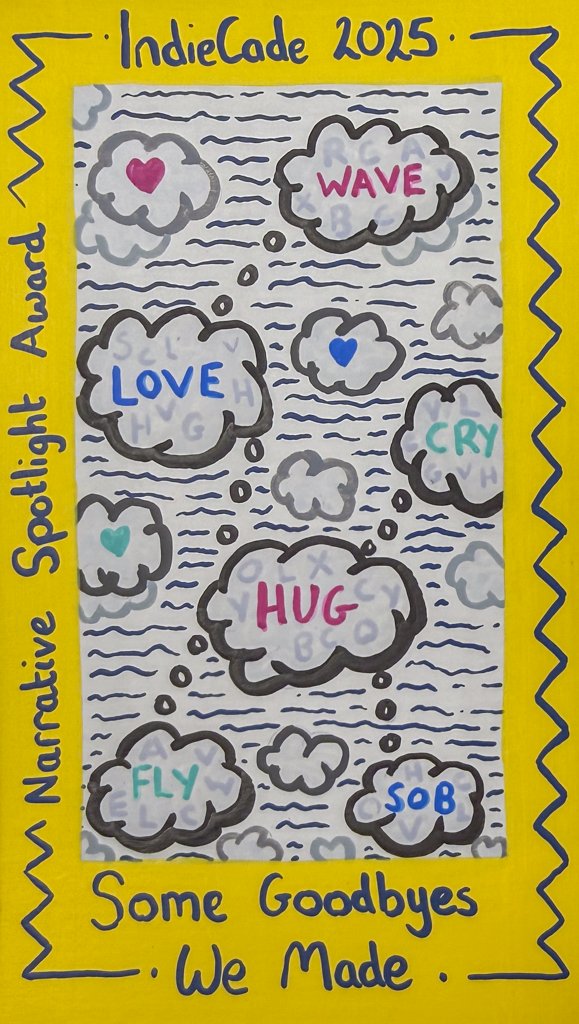 IndieCade 2025
Narrative Spotlight Award
WAVE
LOVE
CRY
HUG
FLY
SOB
Some Goodbyes
We Made